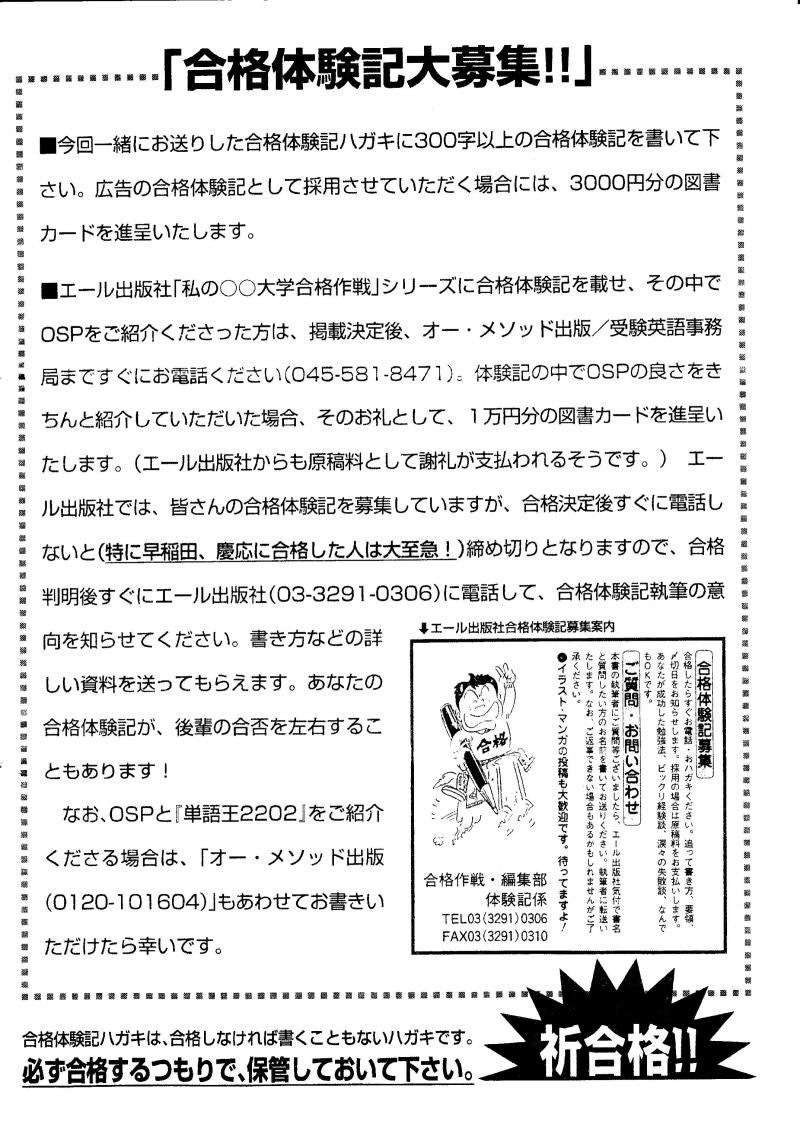 「合格体験記大募集!!」
■今回一緒にお送りした合格体験記ハガキに300字以上の合格体験記を書いて下
さい。広告の合格体験記として採用させていただく場合には、3000円分の図書
カードを進呈いたします。
■エール出版社「私の○○大学合格作戦」シリーズに合格体験記を載せ、その中で
OSPをご紹介くださった方は、掲載決定後、オー・メソッド出版／受験英語事務
局まですぐにお電話ください(045-581-8471)。体験記の中でOSPの良さをき
ちんと紹介していただいた場合、そのお礼として、１万円分の図書カードを進呈い
たします。(エール出版社からも原稿料として謝礼が支払われるそうです。)　エー
ル出版社では、皆さんの合格体験記を募集していますが、合格決定後すぐに電話し
ないと(特に早稲田、慶応に合格した人は大至急！)締め切りとなりますので、合格
判明後すぐにエール出版社(03-3291-0306)に電話して、合格体験記執筆の意
向を知らせてください。書き方などの詳
しい資料を送ってもらえます。あなたの
合格体験記が、後輩の合否を左右するこ
ともあります！
なお、OSPと『単語王2202』をご紹介
くださる場合は、「オー・メソッド出版
(0120-101604)」もあわせてお書きい
ただけたら幸いです。
⬇エール出版社合格体験記募集案内
合格体験記募集
合格したらすぐお電話・おハガキください。追って書き方、要領、
〆切日をお知らせします。採用の場合は原稿料をお支払いします。
あなたが成功した勉強法、ビックリ経験談、涙々の失敗談、なんで
もOKです。
ご質問・お問い合わせ
本書の執筆者にご質問等ございましたら、エール出版社気付で書名
と質問したい方のお名前を書いてお送りください。執筆者に転送い
たします。なお、ご返事できない場合もあるかもしれませんがご了
承ください。
●イラスト・マンガの投稿も大歓迎です。待ってますよ！
合格
合格作戦・編集部
体験記係
TEL03(3291)0306
FAX03(3291)0310
合格体験記ハガキは、合格しなければ書くこともないハガキです。
必ず合格するつもりで、保管しておいて下さい。
祈合格!!